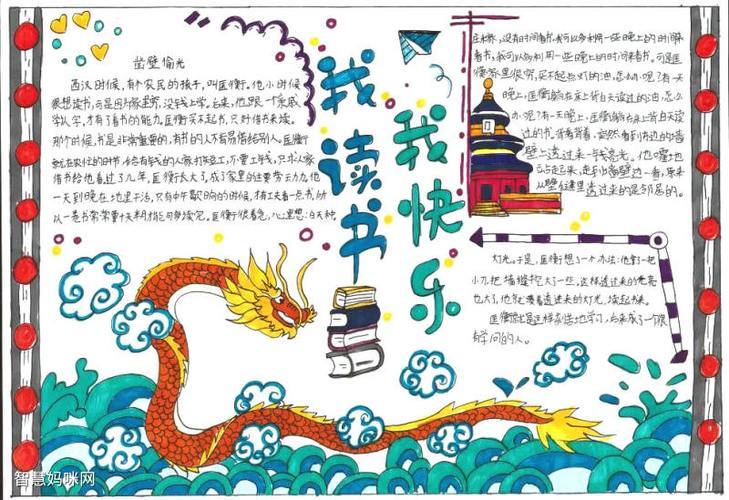 凿壁偷光
西汉时候,有个农民的孩子,叫匡衡。他小时候
很想读书,可是因为家里穷,没钱上学。后来,他跟一个亲戚
学认字,才有了看书的能力。匡衡买不起书,只好借书来读。
那个时候,书是非常贵重的,有书的人不肯轻易借给别人。匡衡
就在农忙的时节,给有钱的人家打短工,不要工钱,只求人家
借书给他看。过了几年,匡衡长大了,成了家里的主要劳动力。他
一天到晚在地里干活,只有中午歇晌的时候,才有工夫看一点书,所
以一卷书常常要十天半月才能够读完。匡衡很着急,心里想:白天种
我读书
我快乐
庄稼,没有时间看书,我可以多利用一些晚上的时间来
看书,我可以多利用一些晚上的时间来看书。可是匡
衡家里很穷,买不起点灯的油,怎么办呢?有一天
晚上,匡衡躺在床上背白天读过的
办呢?有一天晚上,匡衡躺在床上背白天读
过的书。背着背着,突然看到东边的墙
壁上透过来一线亮光。他嚯地
站起来,走到墙壁边一看,原来
从壁缝里透过来的是邻居的
灯光。于是,匡衡想了一个办法:他拿了一把
小刀,把墙缝挖大了一些。这样,透过来的光亮
也大了,他就凑着透进来的灯光,读起书来。
匡衡就是这样刻苦地学习,后来成了一个很
有学问的人。
智慧妈咪网